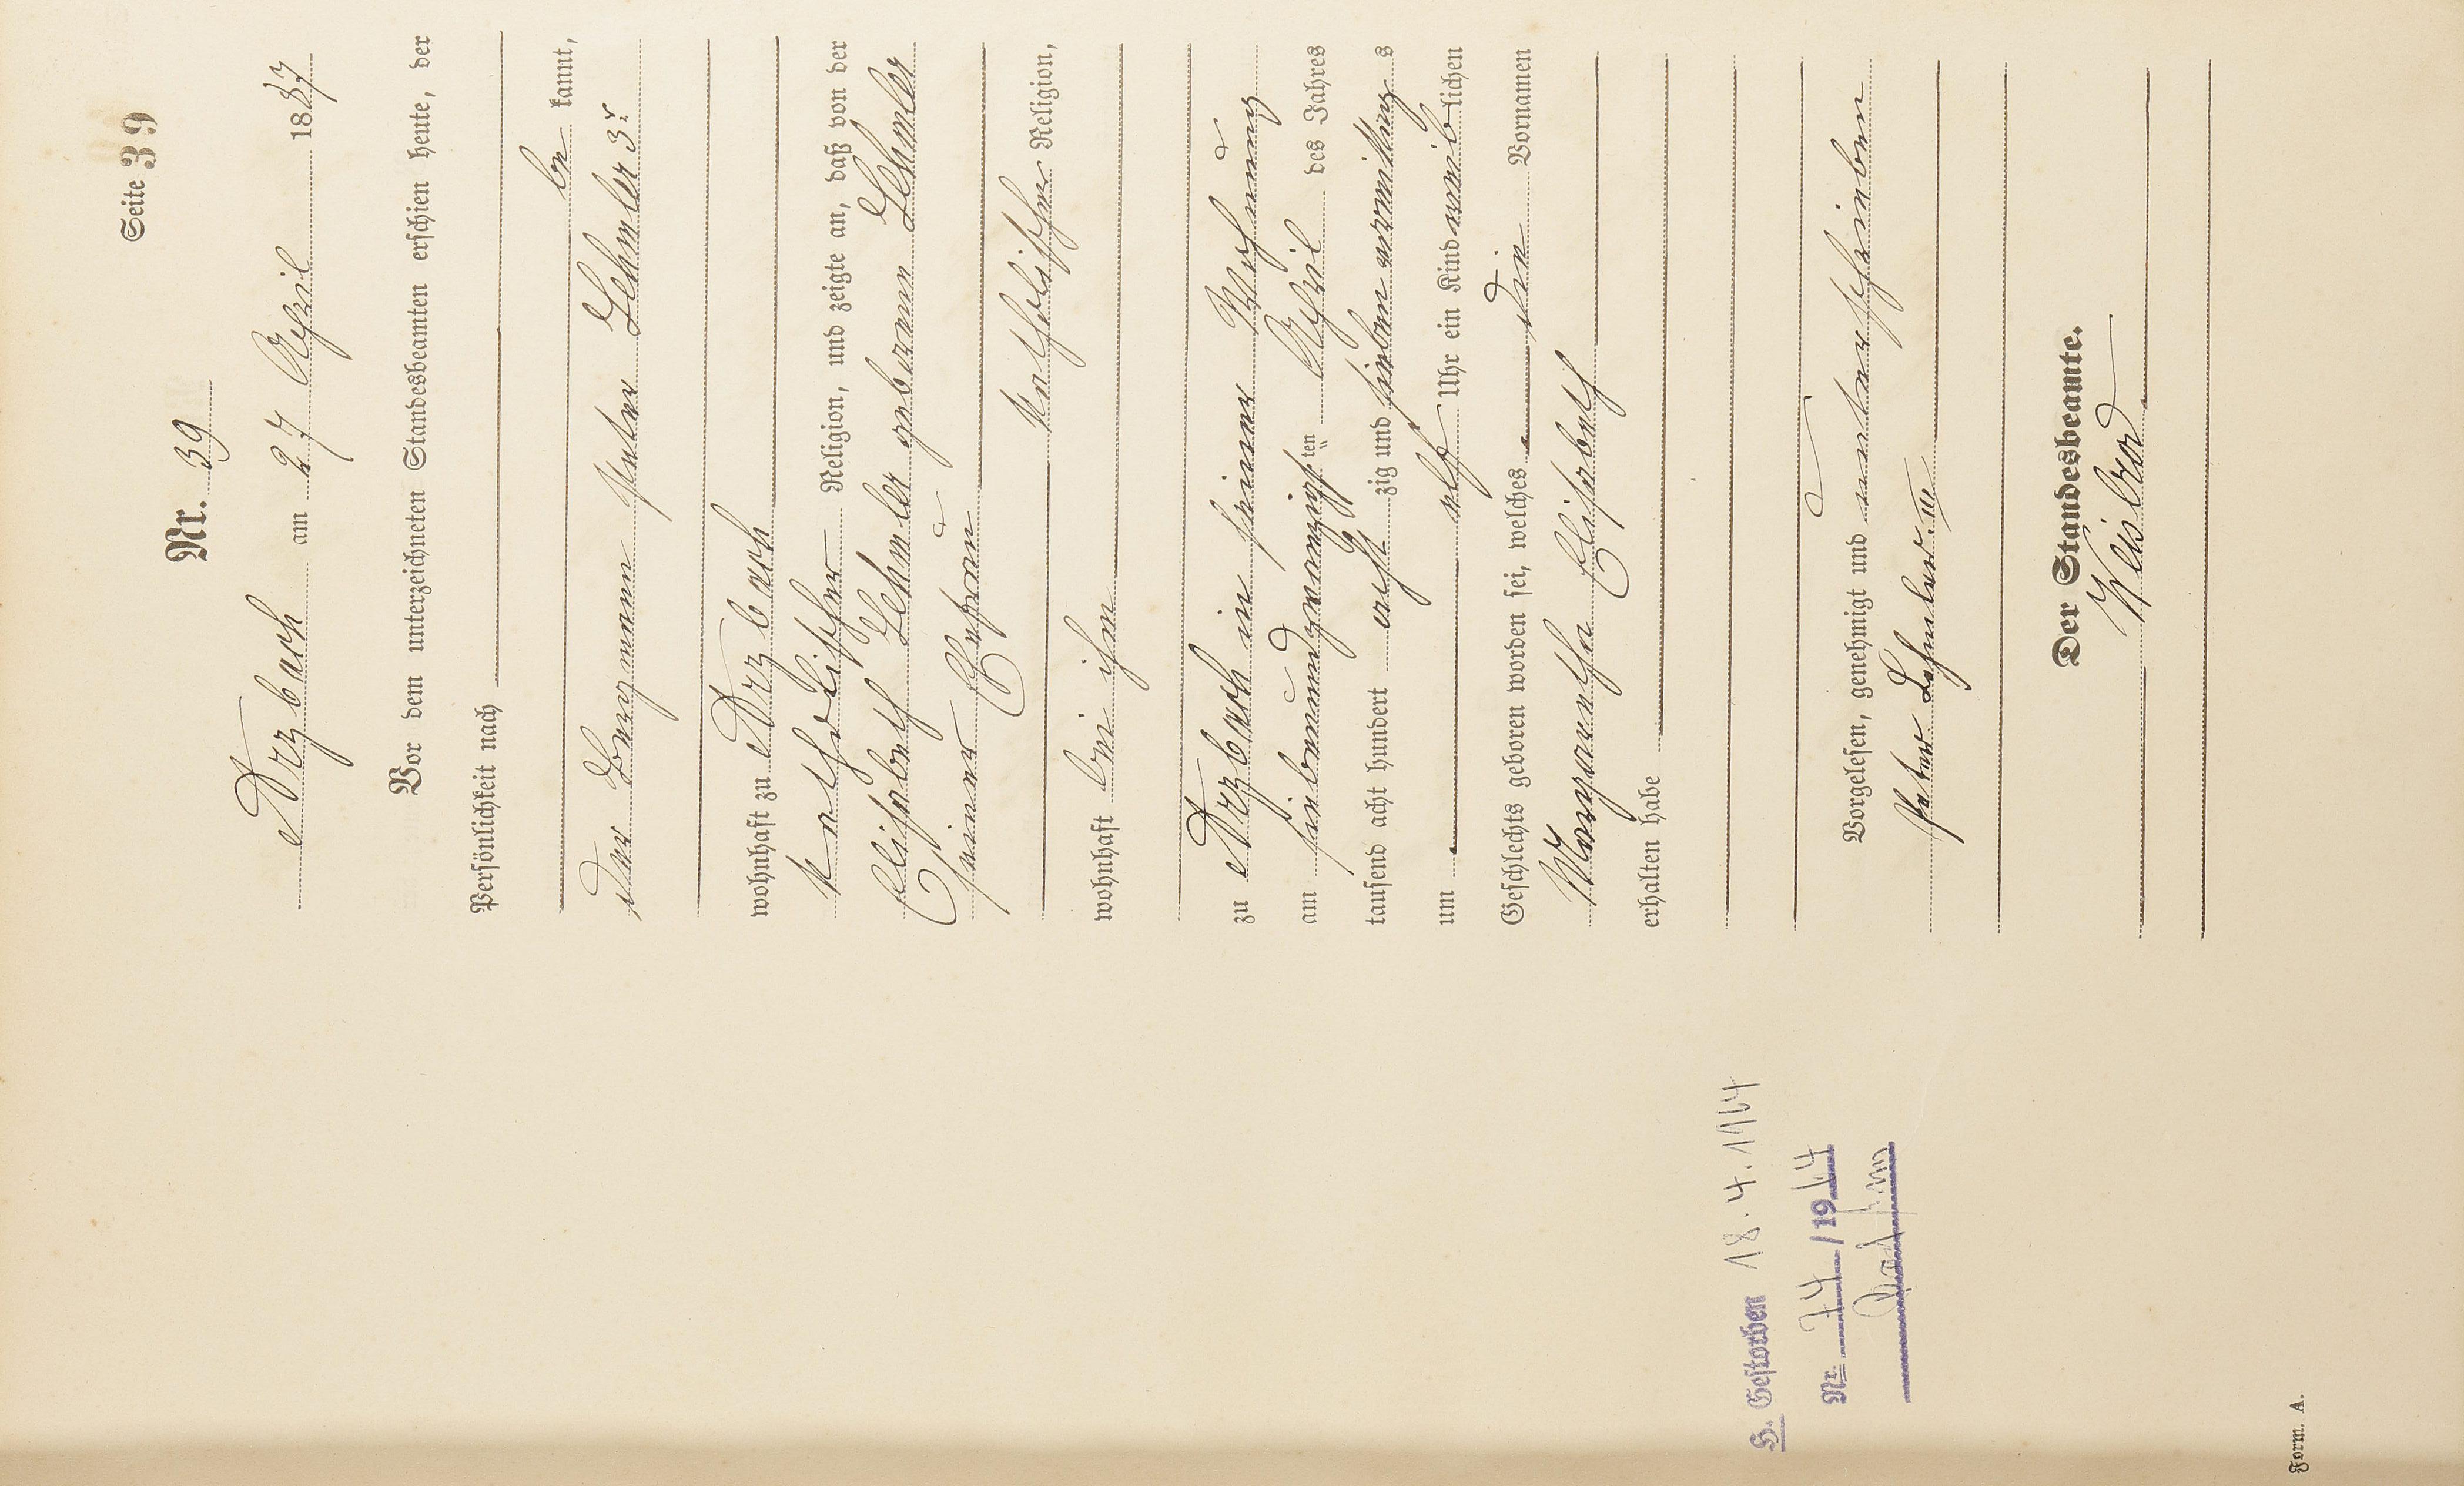 Seite 39
Nr. 39
Arzbach am 27 April 1887
Vor dem unterzeichneten Standesbeamten erschien heute, der
Persönlichkeit nach
be kannt,
der Bergmann Peter Lehmler 3r
wohnhaft zu Arzbach
katholischer Religion, und zeigte an, daß von der
Elisabeth Lehmler geborenen Lehmler
seiner Ehefrau
katholischer Religion,
wohnhaft bei ihm
zu Arzbach in seiner Wohnung
am siebenundzwanzigsten April des Jahres
tausend acht hundert acht zig und sieben vormittags
um elf Uhr ein Kind weiblichen
Geschlechts geboren worden sei, welches die Vornamen
Margaretha Elisabeth
erhalten habe
Vorgelesen, genehmigt und unterschrieben
Peter Lehmler III
Der Standesbeamte.
H. Gestorben 18.4.1964
Nr. 74/1964
Form. A.